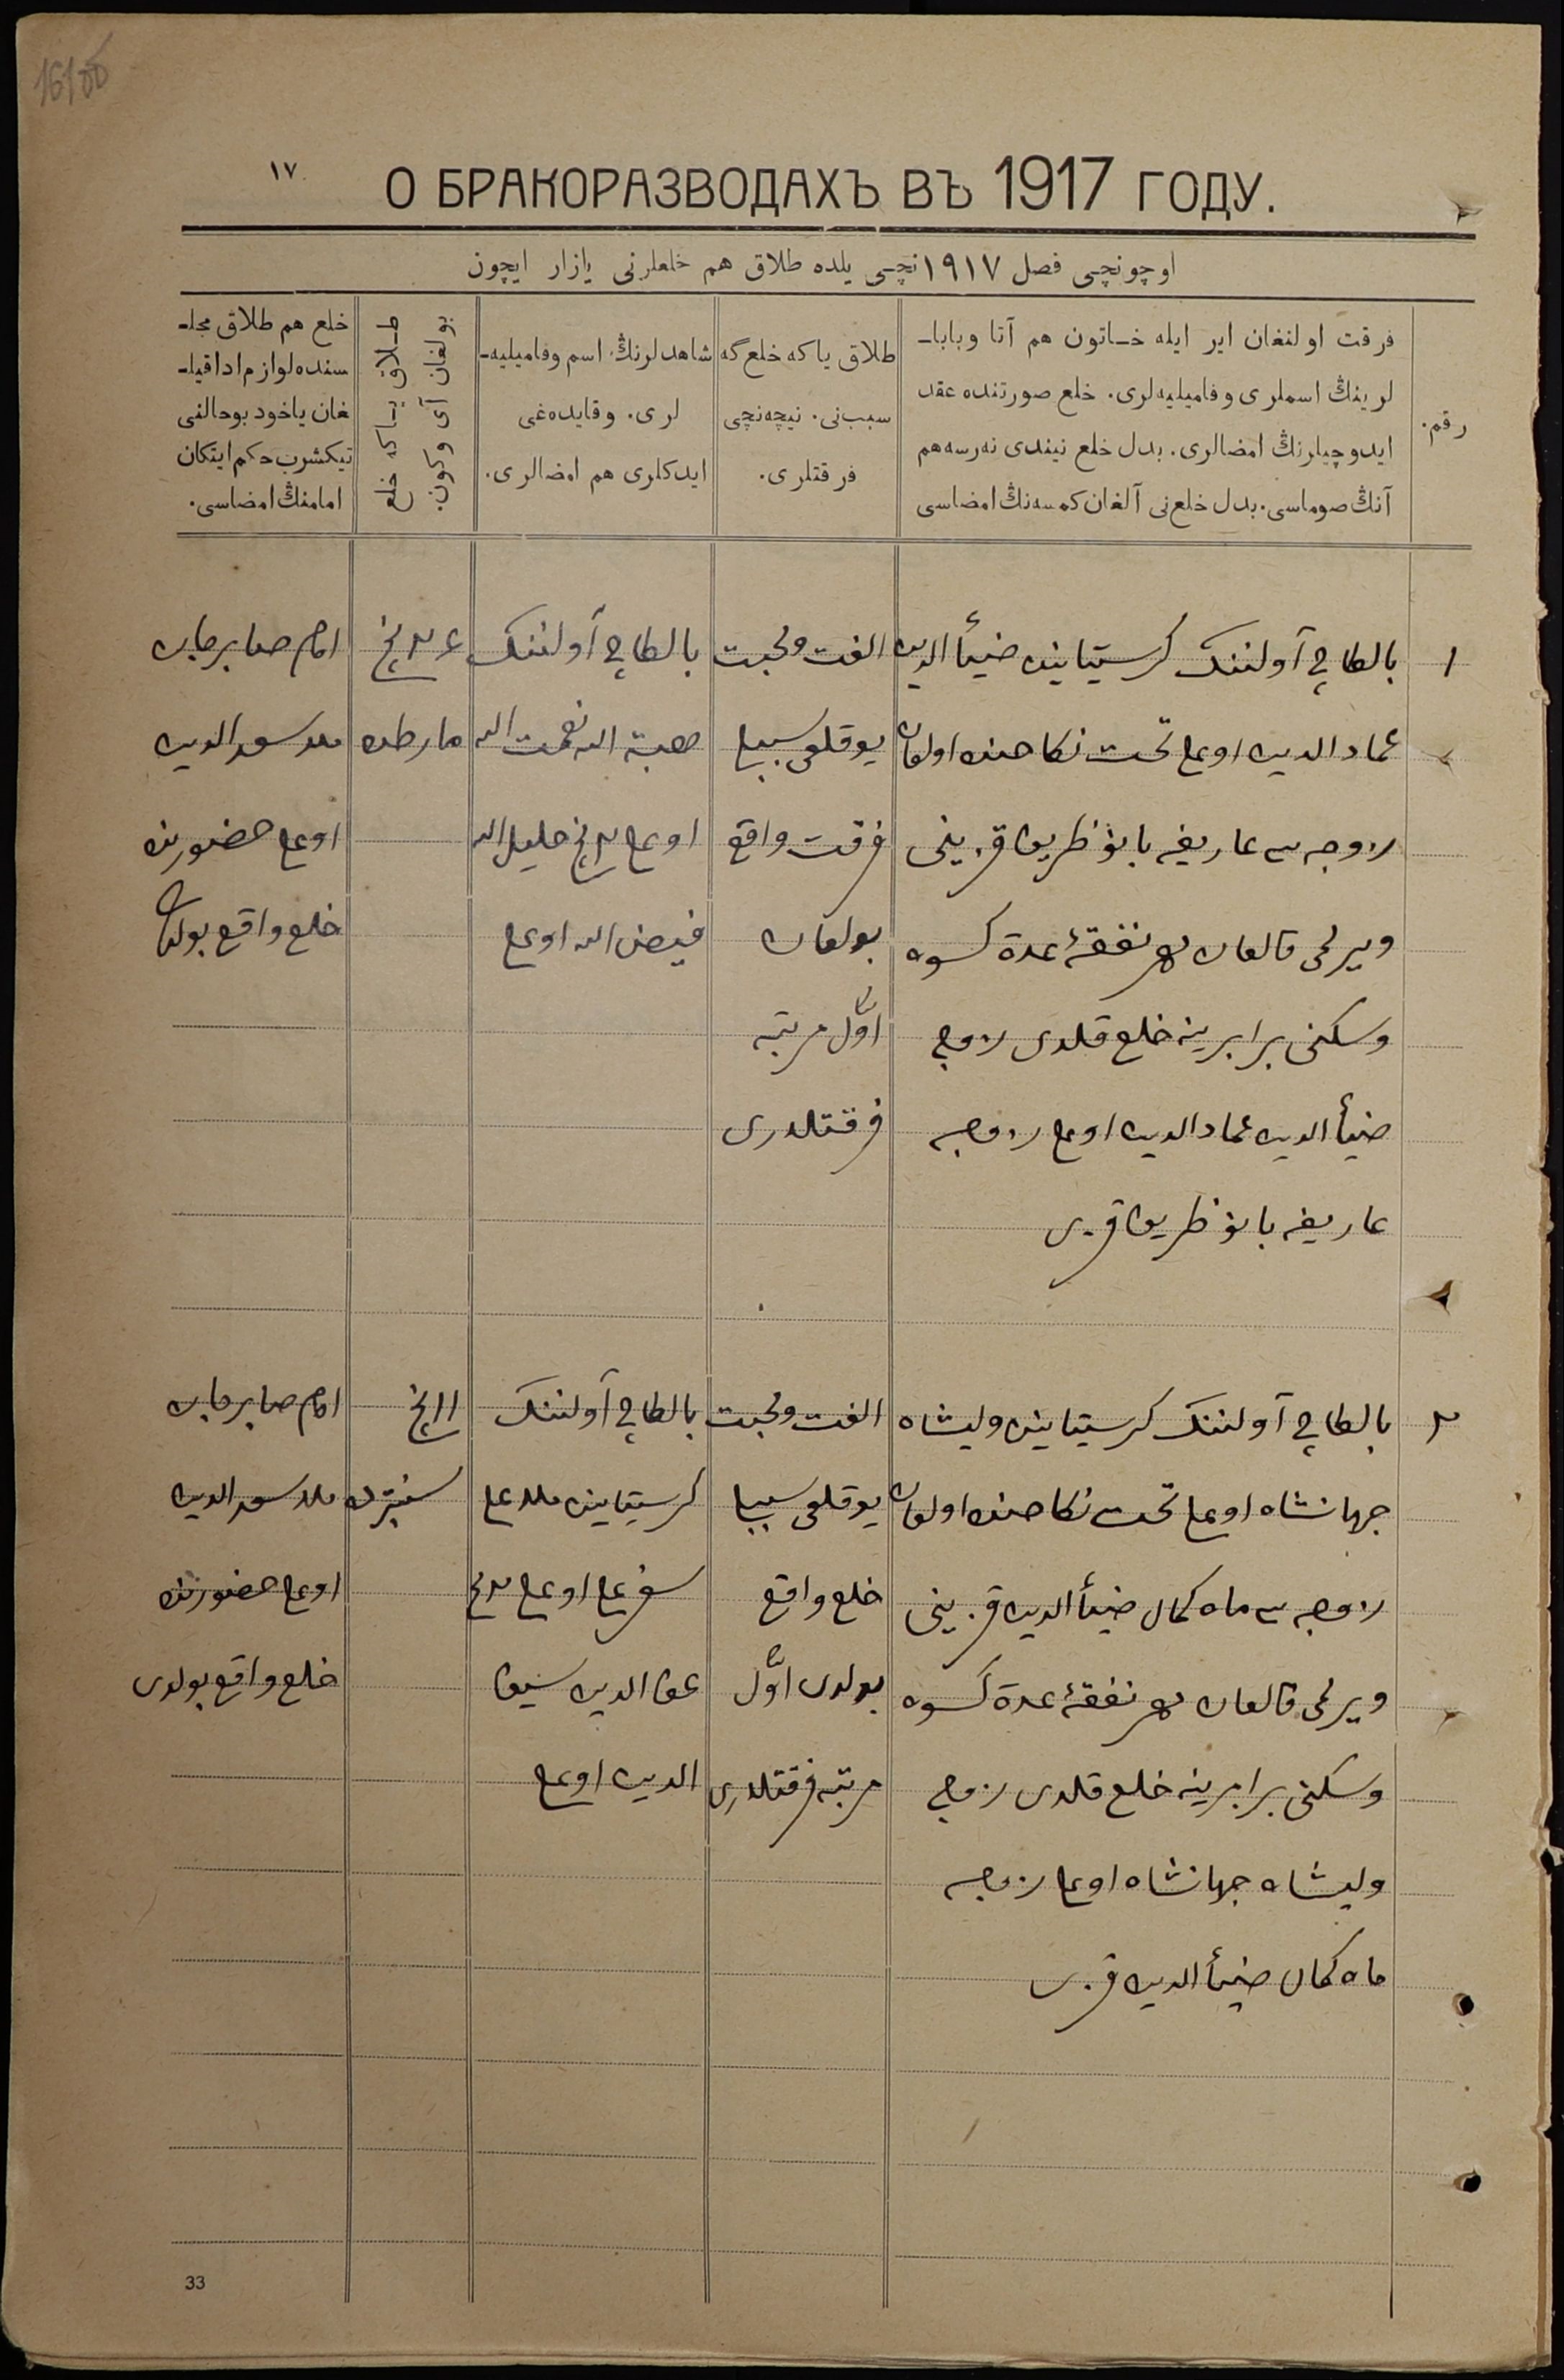 16/об
١٧
О БРАКОРАЗВОДАХЪ ВЪ 1917 ГОДУ.
اوچونچی فصل ١٩١٧ نچی یلده طلاق هم خلعلرنی یازار ایچون
رقم.
فرقت اولنغان ایر ایله خـاتون هم آتا وبابا۔
لرینڭ اسملری وفامیلیه‌لری. خلع صورتنده عقد
ایدوچیلرنڭ امضالری. بدل خلع نیندی نه‌رسه هم
آنڭ صوماسی. بدل خلع‌نی آلغان کمسه‌نڭ امضاسی
طلاق یا که خلع گه
سبب‌نی. نیچه‌نچی
فرقتلری.
شاهدلرنڭ اسم وفامیلیه۔
لری. وقایده‌غی
ایدکلری هم امضالری.
طـلاق یـاکه خلع
بولغان آی وکون.
خلع هم طلاق مجلـ
سنده لوازم ادا قیلـ
غان یاخود بوحالنی
تیکشرب حکم ایتکان
امامنڭ امضاسی.
١
بالطاچ آولننک کرستیانین ضیأ الدین
عماد الدین اوغلی تحت نکاحنده اولغان
زوجه سی عاریفه بانو
ویرلمی قالغان مهر نفقۀ عدة کسوه
وسکنی برابرینه خلع قلدی زوجی
ضیأ الدین عماد الدین اوغلی زوجه
عاریفه بانو
الفت ومحبت
یوقلغی سببلی
فرقت واقع
بولغان
اوّل مرتبه
فرقتلدری
بالطاچ آولننک
هبة الله نعمت الله
اوغلی خلیل الله
فیض الله اوغلی
مارطده
امام صابرجان
ملا سعد الدین
اوغلی حضورنده
خلع واقع بولغان
٢
بالطاچ آولننک کرستیانین ولیشاه
جهانشاه اوغلی تحت نکاحنده اولغان
زوجه سی ماه کمال ضیأ الدین قزینی
ویرلمی قالغان مهر نفقۀ عدة کسوه
وسکنی برابرینه خلع قلدی زوجی
ولیشاه جهانشاه اوغلی زوجه
ماه کمال ضیأ الدین قزی
الفت ومحبت
یوقلغی سببلی
خلع واقع
بولدی اوّل
مرتبه فرقتلدری
بالطاچ آولننک
کرستیانین
الدین اوغلی
١١ نچی
امام صابرجان
ملا سعد الدین
اوغلی حضورنده
خلع واقع بولدی
33